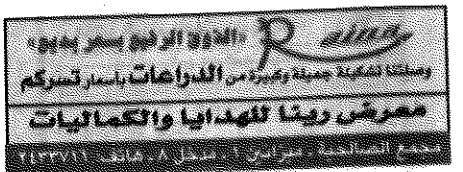 «الذوق الرفيع بسعر بديع»
وصلتنا تشكيلة جميلة وكبيرة من الدراعات بأسعار تسركم
معرض رينا للهدايا والكماليات
مجمع الصالحية . ميزانين ١ . مدخل ٨ . هاتف: ٢٤٣٣٧١٦